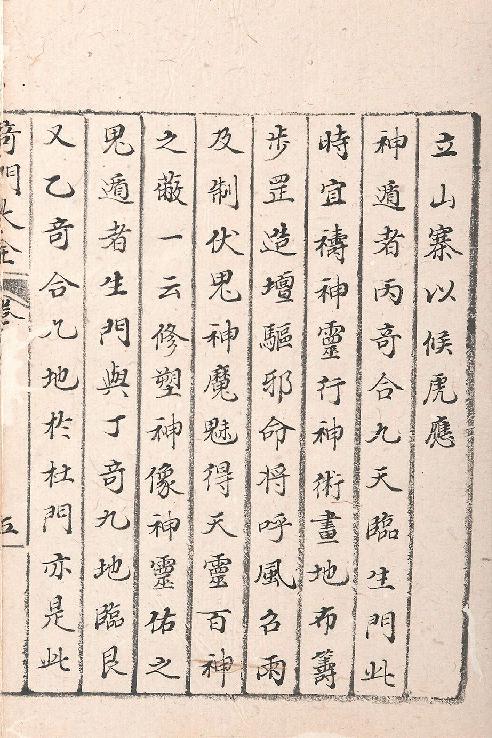 立山寨以候虎應
神遁者丙奇合九天臨生門此
時宜禱神靈行神術畫地布籌
步罡造壇驅邪命将呼風召雨
及制伏鬼神魔魅得天靈百神
之蔽一云修塑神像神靈佑之
鬼遁者生門與丁奇九地臨艮
又乙奇合九地扵杜門亦是此
奇門大全
五